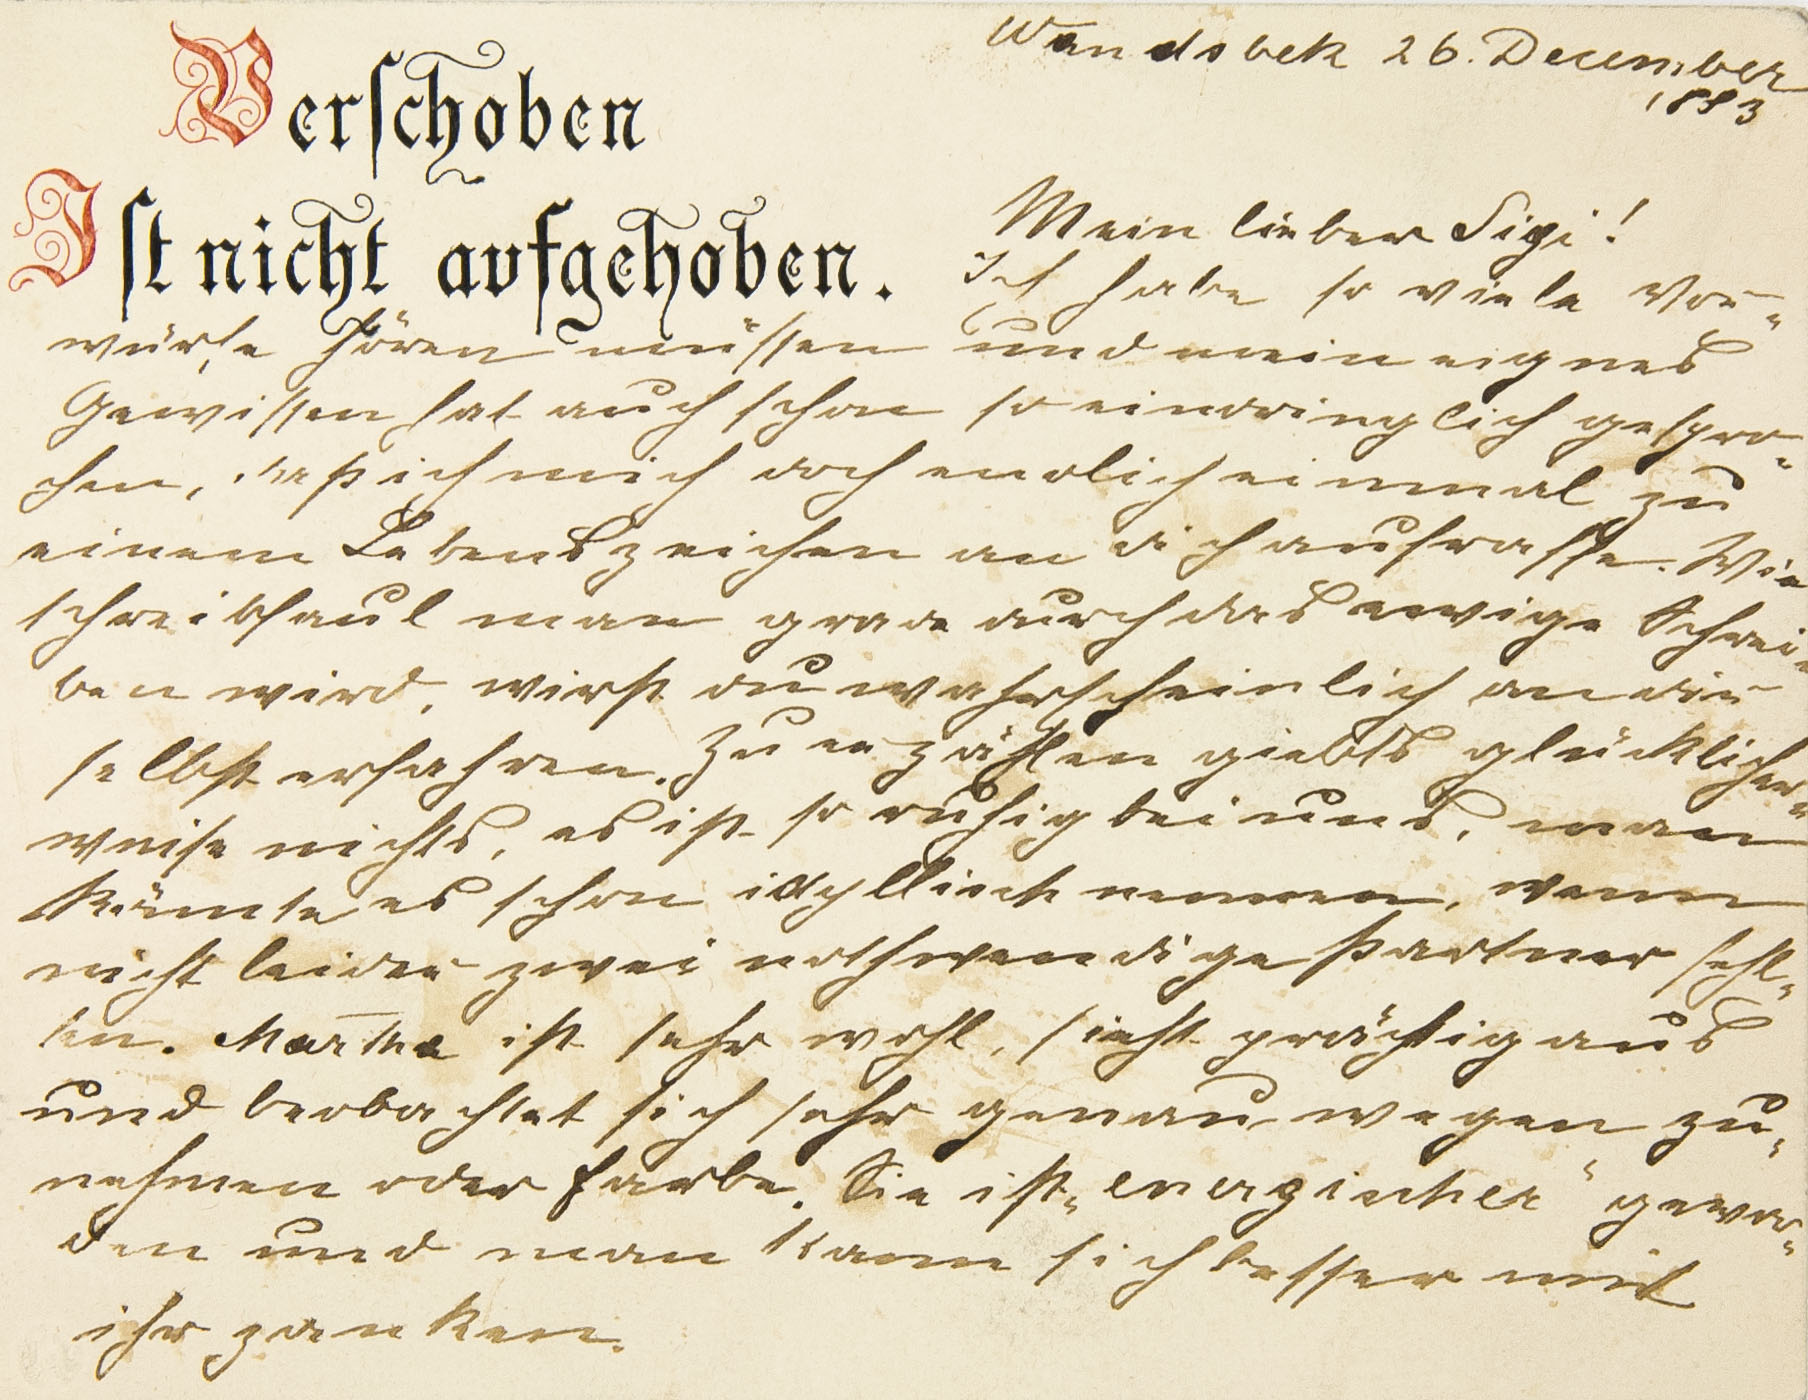 Verschoben
Ist nicht aufgehoben.
Wandsbek 26. December
1883
Mein lieber Sigi!
Ich habe so viele Vor-
würfe hören müssen und mein eignes
Gewissen hat auch schon so eindringlich gespro-
chen, daß ich mich doch endlich einmal zu
einem Lebenszeichen an dich aufraffe. Wie
schreibfaul man grade durch das ewige Schrei-
ben wird, wirst du wahrscheinlich an dir
selbst erfahren. Zu erzählen giebts glücklicher-
weise nichts, es ist so ruhig bei uns, man
könnte es schon idyllisch nennen, wenn
nicht leider zwei nothwendige Partner fehl-
ten. Martha ist sehr wohl, sieht prächtig aus
und beobachtet sich sehr genau wegen zu-
nehmen oder Farbe. Sie ist „energischer“ gewor-
den und man kann sich besser mit
ihr zanken.